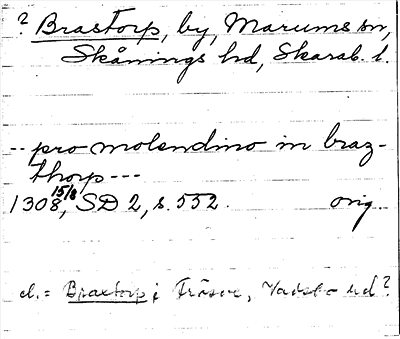 ? Brastorp, by, Marums sn,
Skånings hd, Skarab. l.
-- pro molendino in braz-
thorp ---
1308 15/8, SD 2, s. 552. orig.
el. = Braxtorp i Fråsve, Vadsbo hd?